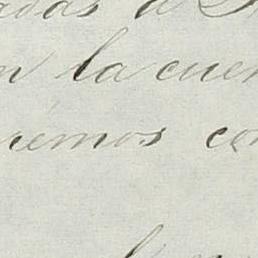 adas a
n la cuen
remos co